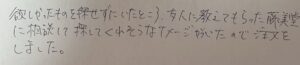 欲しかったものを探せずにいたところ、友人に教えてもらった藤美堂
に相談して探してくれそうなイメージがついたので注文を
しました。